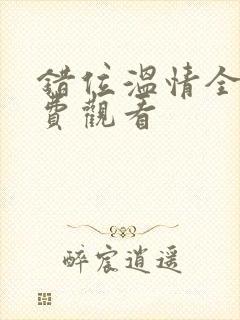 錯位溫情全
費觀看
醉宸逍遥